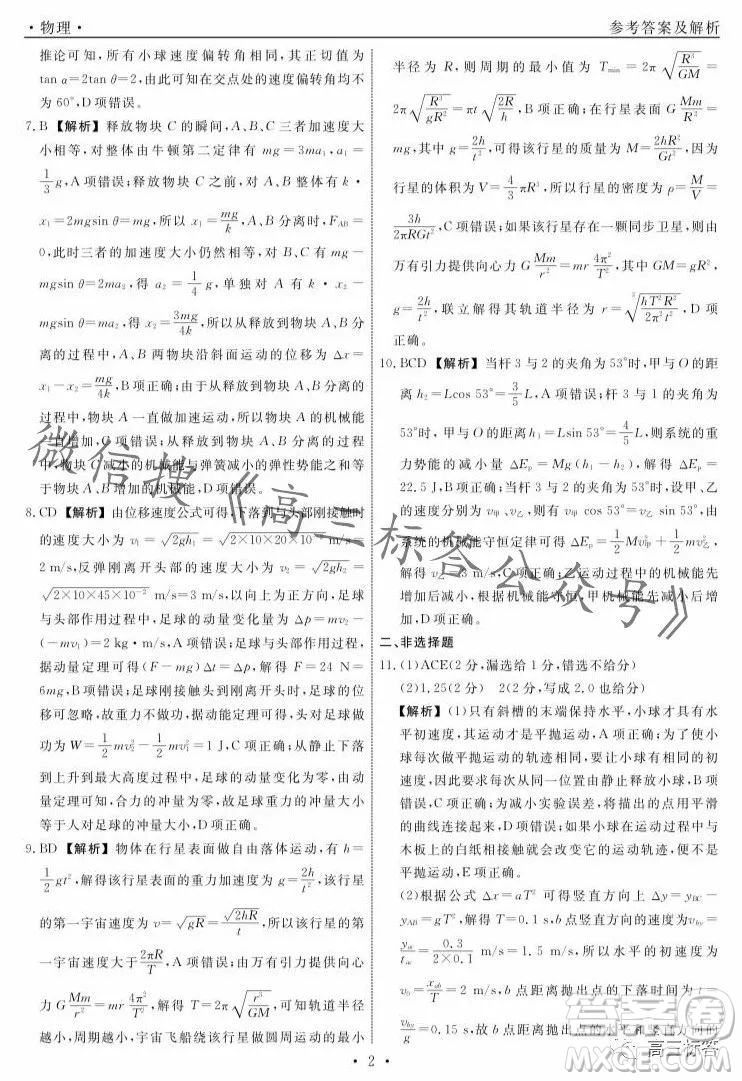 ·物理·
参考答案及解析
推论可知,所有小球速度偏转角相同,其正切值为
tan α=2tan θ=2,由此可知在交点处的速度偏转角均不
为60°,D项错误。
7.B 【解析】释放物块C的瞬间,A、B、C三者加速度大
小相等,对整体由牛顿第二定律有 mg=3ma₁,a₁=
1/3 g,A项错误;释放物块C之前,对A、B整体有 k·
x₁=2mgsin θ=mg,所以 x₁=mg/k,A、B分离时,F_AB=
0,此时三者的加速度大小仍然相等,对B、C整体有 mg-
mgsin θ=2ma₂,得 a₂=1/4 g,单独对A有 k·x₂-
mgsin θ=ma₂,得 x₂=3mg/4k,所以从释放物块C到A、B分
离的过程中,A、B两物块沿斜面运动的位移为 Δx=
x₁-x₂=mg/4k,B项正确;由于从释放物块C到A、B分离的
过程中,物块A一直做加速运动,所以物块A的机械能
一直增加,C项错误;从释放物块C到A、B分离的过程
中,物块C减小的机械能与弹簧减小的弹性势能之和
等于物块A、B增加的机械能,D项错误。
8.CD 【解析】由位移速度公式可得,下落到与头部刚接触时
的速度大小为 v₁=√(2gh₁)=√(2×10×20×10⁻²) m/s=
2 m/s,反弹刚离开头部的速度大小为 v₂=√(2gh₂)=
√(2×10×45×10⁻²) m/s=3 m/s,以向上为正方向,与
头部作用过程中,足球的动量变化量为 Δp=mv₂-
(-mv₁)=2 kg·m/s,A项错误;足球与头部作用过程,根
据动量定理可得(F-mg)Δt=Δp,解得 F=24 N=
6mg,B项错误;足球刚接触到头部到刚离开头部的位
移可忽略,故重力不做功,由动能定理可得,头部对足球
做功为 W=1/2 mv₂²-1/2 mv₁²=1 J,C项正确;从静止下落
到上升到最高点过程中,足球的动量变化为零,由动
量定理可知,合力的冲量为零,则足球重力的冲量大小
等于头部对足球的冲量大小,D项正确。
9.BD 【解析】物体在行星表面做自由落体运动,有 h=
1/2 gt²,解得该行星表面的重力加速度为 g=2h/t²,该行星
的第一宇宙速度为 v=√(gR)=√(2hR)/t,所以该行星的第
一宇宙速度大于 2πR/T,A项错误;由万有引力提供向心
力 G Mm/r²=mr 4π²/T²,解得 T=2π√(r³/GM),可知轨道半径
越小,周期越小,宇宙飞船绕该行星做圆周运动的最小
半径为R,则周期的最小值为 T_min=2π√(R³/GM)=
2π√(R³/gR²)=πt√(2R/h),B项正确;在行星表面有 G Mm/R²=
mg,其中 g=2h/t²,可得该行星的质量为 M=2hR²/Gt²,因该
行星的体积为 V=4/3 πR³,所以行星的密度为 ρ=M/V=
3h/2πRGt²,C项错误;如果该行星存在一颗同步卫星,由
万有引力提供向心力 G Mm/r²=mr 4π²/T²,GM=gR²,
g=2h/t²,联立解得其轨道半径为 r=∛(hT²R²/2π²t²),D项
正确。
10.BCD 【解析】当杆3与2的夹角为53°时,甲与O的距
离 h₂=Lcos 53°=3/5 L,A项错误;杆3与1的夹角为
53°时,甲与O的距离 h₁=Lsin 53°=4/5 L,则系统的重
力势能的减小量 ΔE_p=Mg(h₁-h₂),解得 ΔE_p=
22.5 J,B项正确;当杆3与2的夹角为53°时,设甲、乙
的速度分别为 v甲、v乙,则有 v甲cos 53°=v乙sin 53°,由
系统的机械能守恒定律可得 ΔE_p=1/2 Mv甲²+1/2 mv乙²,
解得 v乙=3 m/s,C项正确;乙运动过程中,机械能先
增加后减小,甲机械能先减小后增加,D项正确。
二、非选择题
11.(1)ACE(2分,漏选给1分,错选不给分)
(2)1.25(2分) 2(2分,写成2.0也给分)
【解析】(1)只有斜槽的末端保持水平,小球才具有水
平初速度,其运动才是平抛运动,A项正确;为了使小
球每次做平抛运动的轨迹相同,则要让它具有相同的初
速度,因此要求每次从同一位置由静止释放小球,B项
错误,C项正确;为减小实验误差,将描出的点用平滑
的曲线连接起来,D项错误;小球在运动过程中若与
木板上的白纸相接触就会改变它的运动轨迹,便不是
平抛运动,E项正确。
(2)根据公式 Δx=aT² 可得竖直方向上 Δy=y_BC-
y_AB=gT²,解得 T=0.1 s,b点竖直方向的速度为v_by=
y_ac/t_ac=0.3/(2×0.1) m/s=1.5 m/s,所以水平的初速度为
v₀=x_ab/T=2 m/s,b点距离抛出点的下落时间为 t=
v_by/g=0.15 s,故b点距离抛出点的水平和竖直方向的
·2·
微信搜《高三标答公众号》
答案圈
MXQE.COM
高三标答